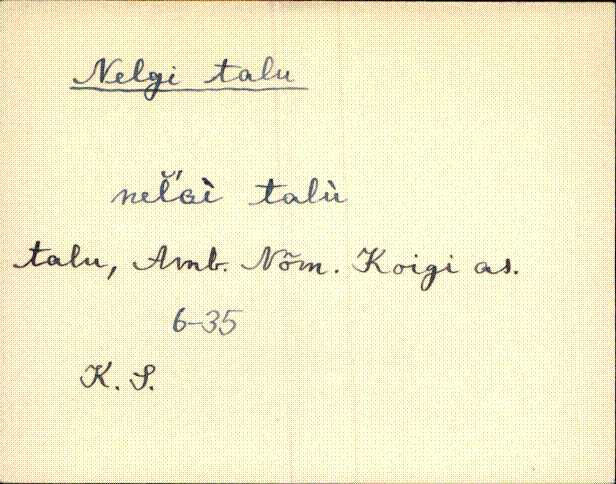 Nelgi talu
nel̆'ɢì talù
talu, Amb. Nõm. Koigi as.
6-35
K. S.